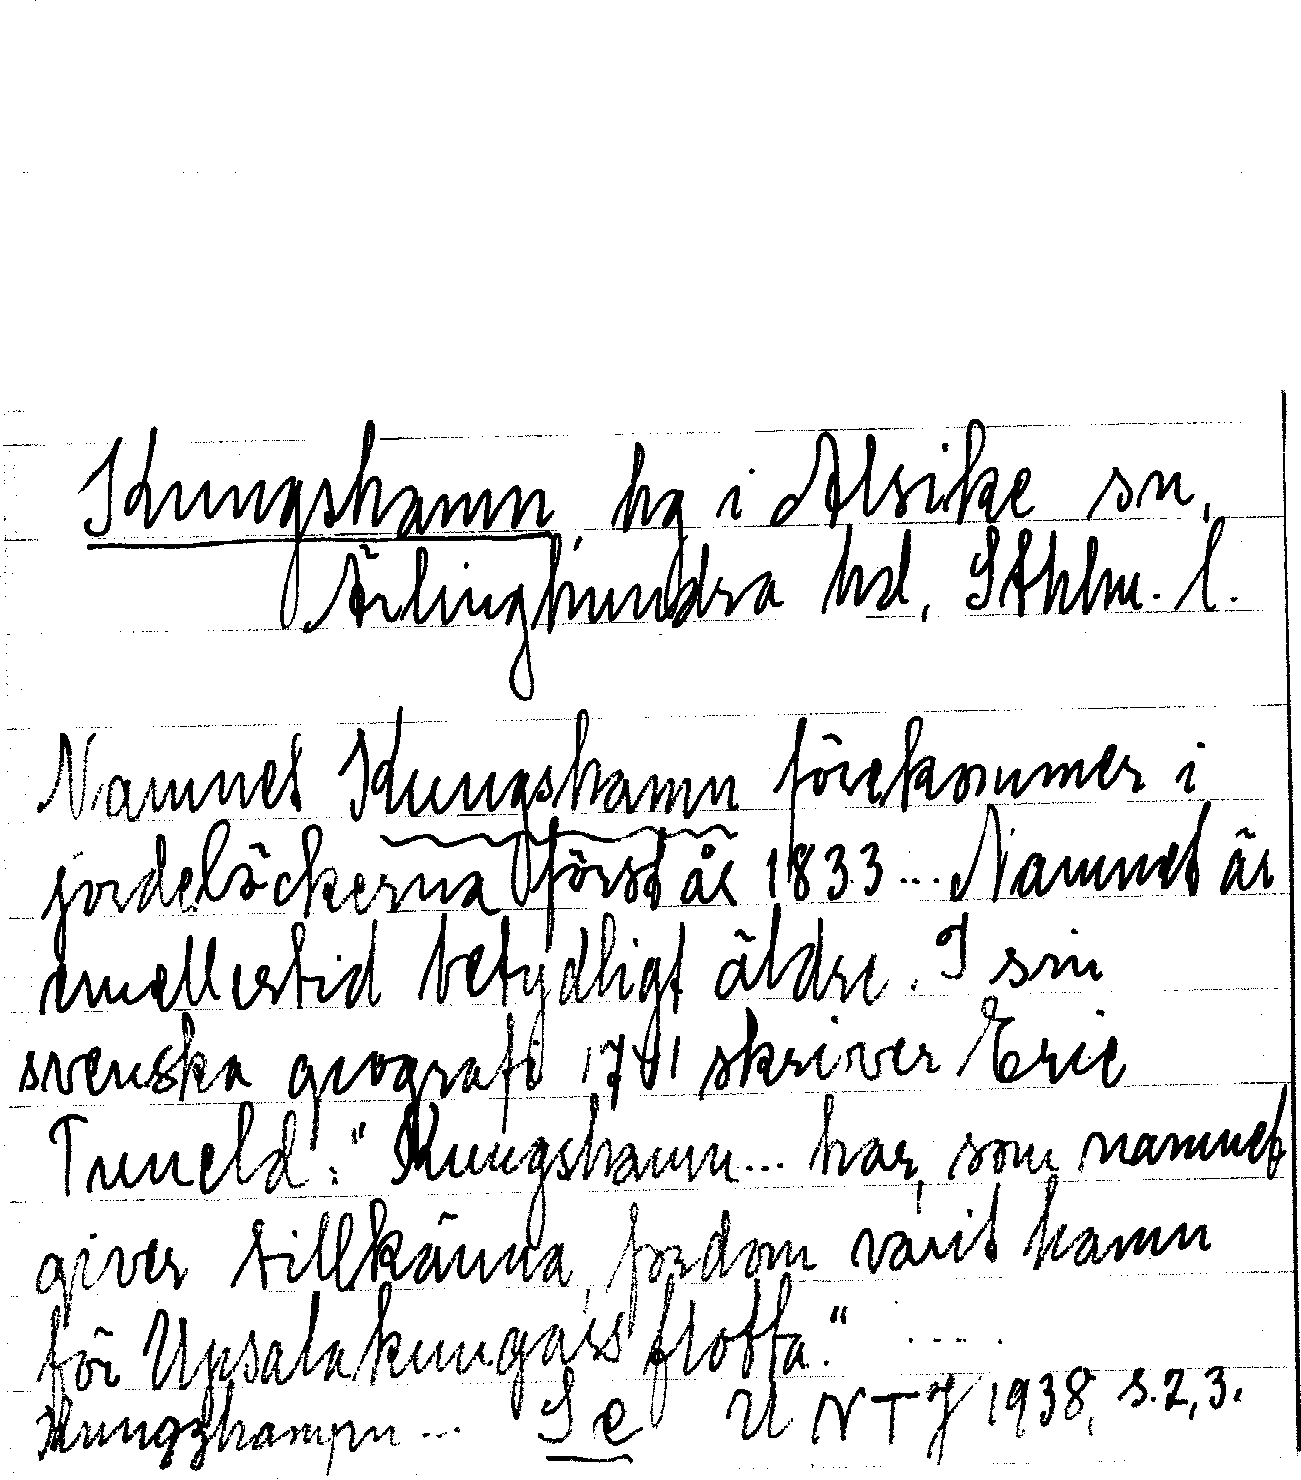 Kungshamn, hg i Alsike sn,
Ärlinghundra hd, Sthlm. l.
Namnet Kungshamn förekommer i
jordeböckerna först år 1833... Namnet är
emellertid betydligt äldre. I sin
svenska geografi 1741 skriver Eric
Tuneld: "Kungshamn... har, som namnet
giver tillkänna, fordom varit hamn
för Upsalakungars flotta." ....
Kungzhampn... Se UNTJ 1938, s. 2, 3.